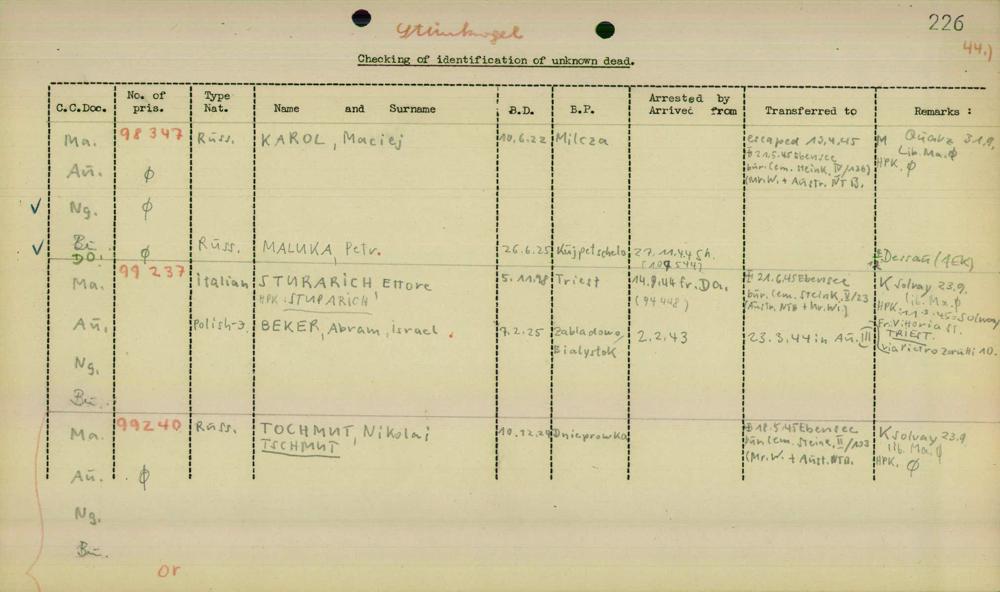 226
44.)
Checking of identification of unknown dead.
C.C.Doc. No. of pris. Type Nat. Name and Surname B.D. B.P. Arrested by Arrived from Transferred to Remarks :
Ma. 98347 Russ. KAROL, Maciej 10.6.22 Milcza escaped 13.4.45 M Quarz 31.8.
‡ 21.5.45 Ebensee Lib. Ma. ϕ
Aü. ϕ bür. Cem. Steink. IV/136) HPK. ϕ
(Mr.W. + Austr. NTB.
✓ Ng. ϕ
✓ Bü. ϕ Russ. MALUKA, Petr. 26.6.25 27.11.44 Sh.
DO. Dessau (AEK)
Ma. 99237 Italian STURARICH Ettore 5.11.98 Triest 14.9.44 fr. Da. ‡ 21.6.45 Ebensee K Solvay 23.9.
HPK: STUPARICH (94448) bür. Cem. Steink. V/23 lib. Ma. ϕ
(Austr. NTB + Mr.W.) HPK:
Aü. Polish-J. BEKER, Abram, israel. 7.2.25 Zabladowo, Bialystok 2.2.43 23.3.44 in Aü. III Fr. Vittoria St.
TRIEST.
via Pietro Zorutti 10.
Ng.
Bü.
Ma. 99240 Russ. TOCHMUT, Nikolai Dnieprowka ‡ 18.5.45 Ebensee K Solvay 23.9
TSCHMUT bür. Cem. Steink. II/103 lib. Ma. ϕ
Aü. ϕ (Mr.W. + Austr. NTB. HPK. ϕ
Ng.
Bü.
or